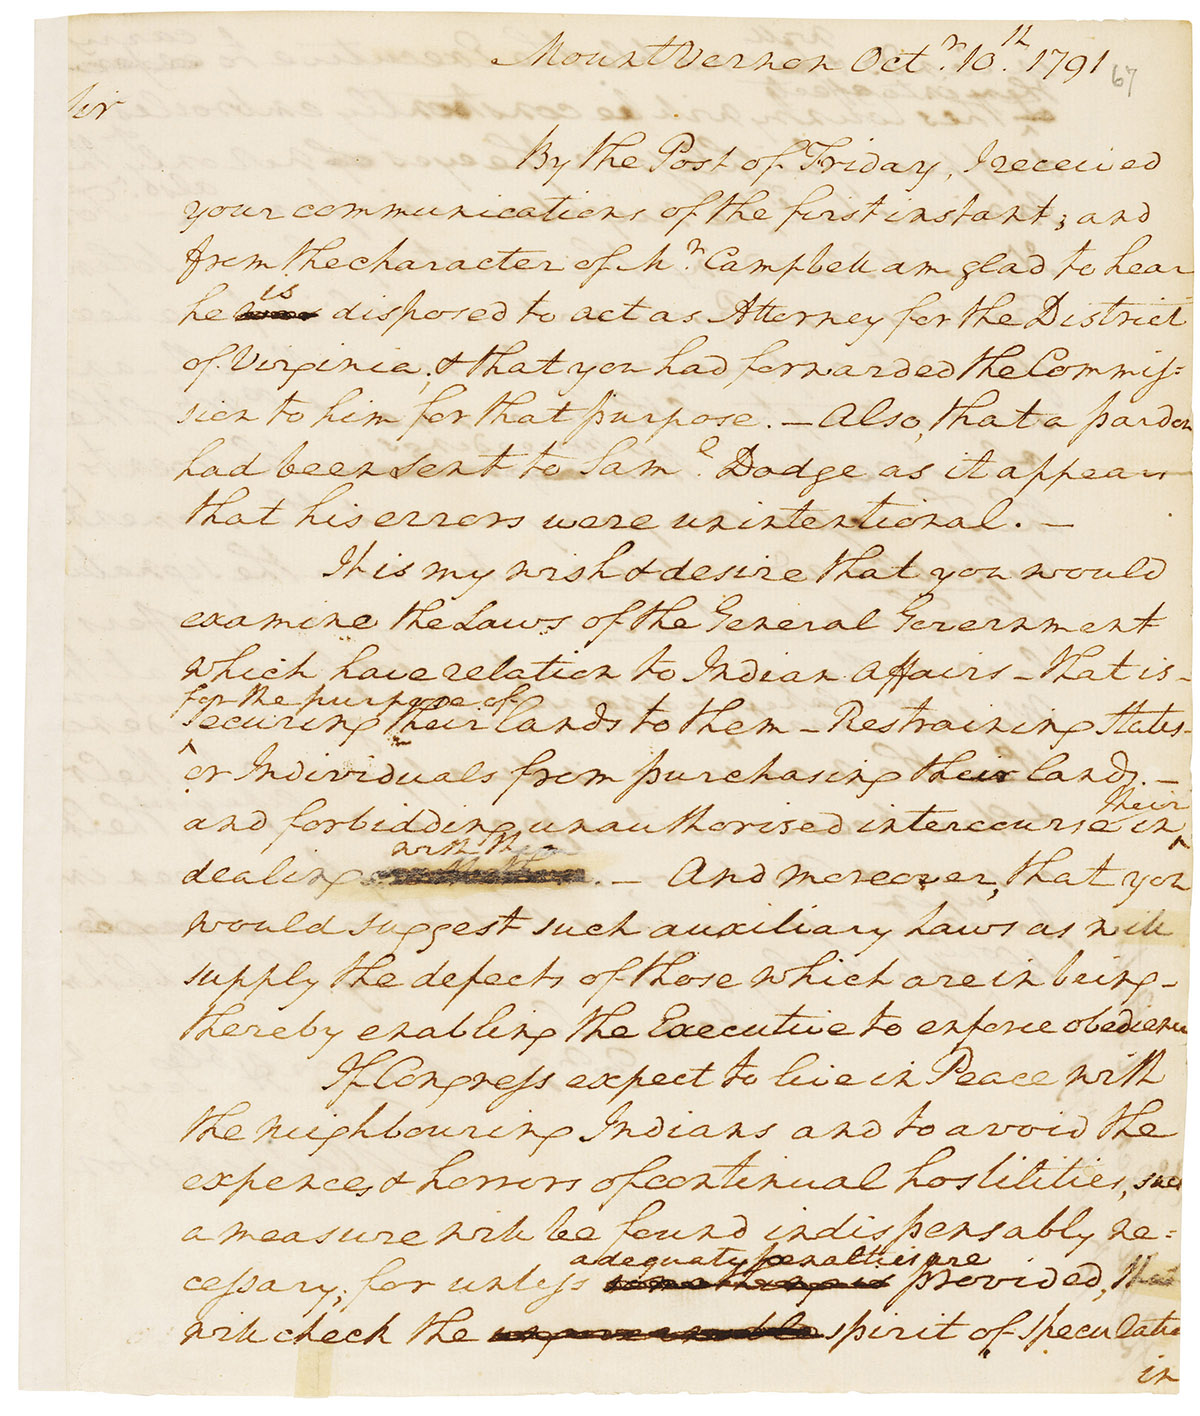 Mount Vernon Octr. 10th. 1791
67
Sir
By the Post of Friday, I received
your communications of the first instant; and
from the character of Mr. Campbell am glad to hear
is
he disposed to act as Attorney for the District
of Virginia, & that you had forwarded the Commis=
sion to him for that purpose. — Also, that a pardon
had been sent to Saml. Dodge as it appears
that his errors were unintentional. —
It is my wish & desire that you would
examine the Laws of the General Government
which have relation to Indian affairs – that is –
for the purpose of
securing their lands to them – Restraining States
^
or Individuals from purchasing their lands. –
their
and forbidding unauthorised intercourse in
^
with them
dealing . — And moreover, that you
would suggest such auxiliary Laws as will
supply the defects of those which are in being –
thereby enabling the Executive to enforce obedience
If Congress expect to live in Peace with
the neighbouring Indians and to avoid the
expences & horrors of continual hostilities, such
a measure will be found indispensably ne=
adequaty penalties are
cessary; for unless something is provided, that
will check the ungovernable spirit of speculation
in